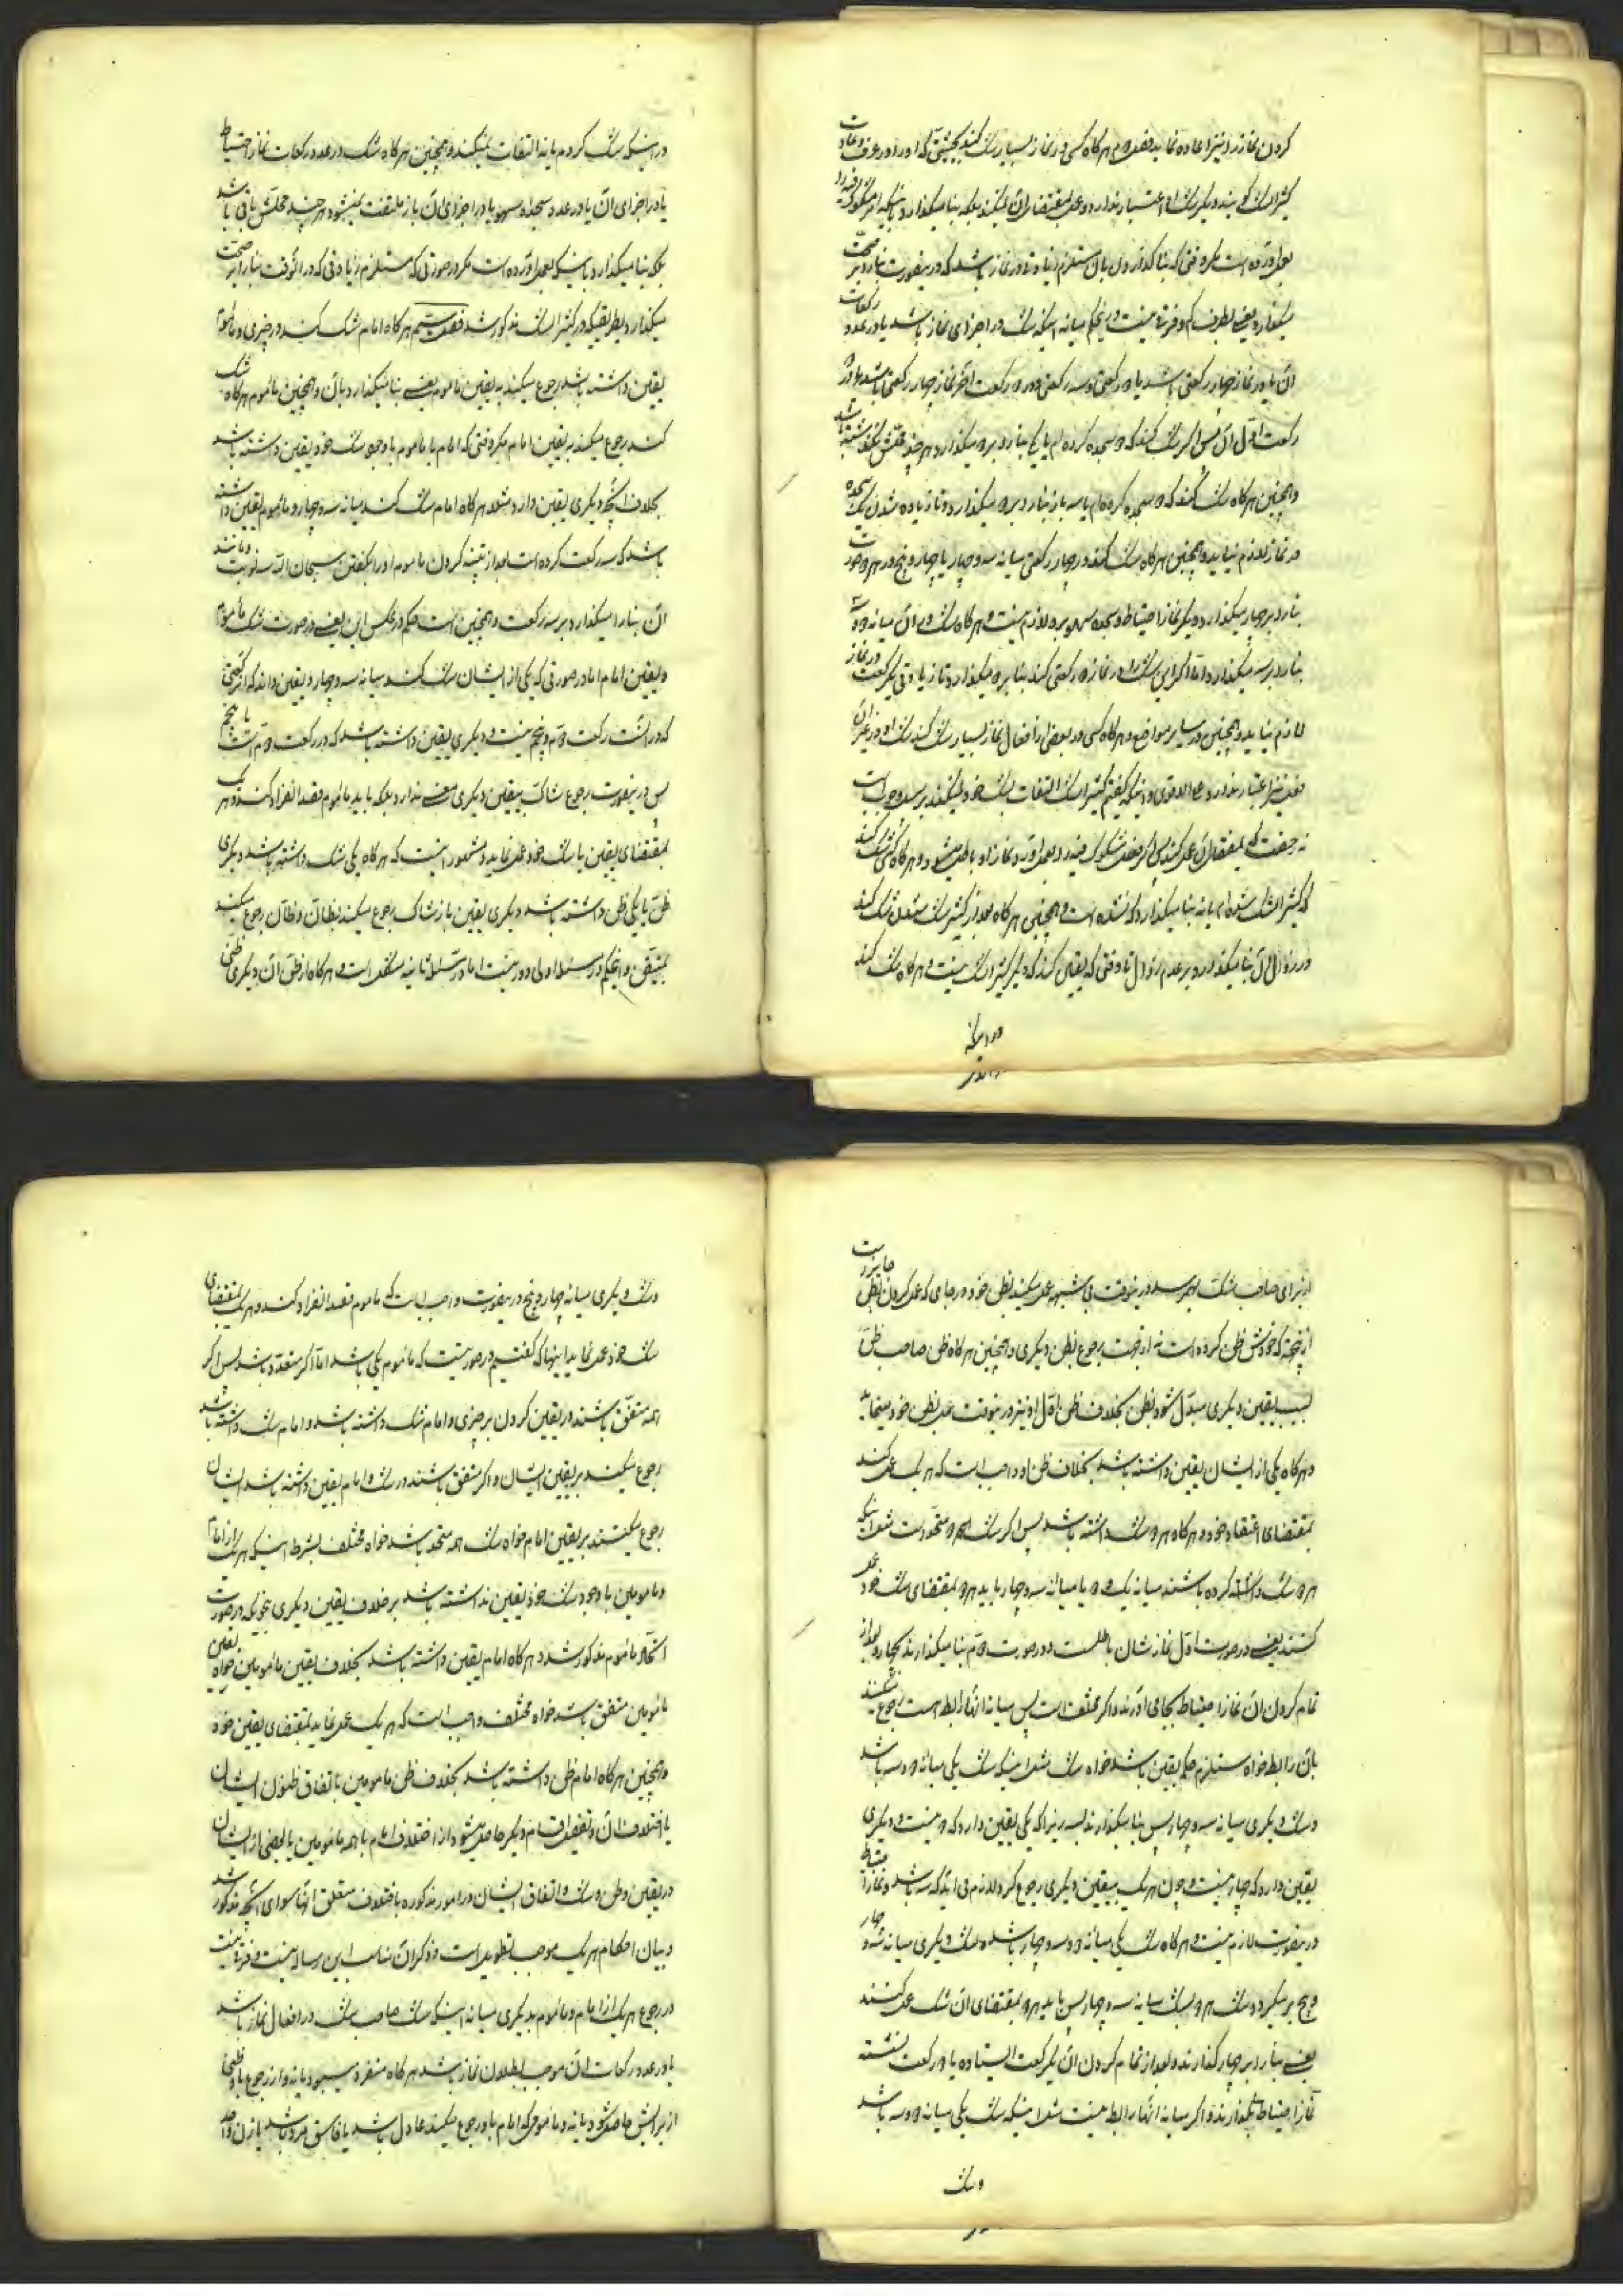 کردن نماز را نیز اعاده نماید فصل دوم هرگاه کسی در نماز بسیار شک کند بحیثیتی که او را در عرف و عادت
کثیر الشک گویند دیگر شک او اعتبار ندارد و عمل بمقتضای آن نمیکند بلکه بنا میگذارد باینکه امر مشکوک فیه را
بعمل آورده است مگر وقتی که بنا گذاردن بآن مستلزم زیادتی در نماز باشد که در اینصورت بنا را بر صحت
میگذارد یعنی بطرف کم و فرقی نیست در این حکم میانه اینکه شک در اجزای نماز باشد یا در عدد رکعات
آن یا در نماز چهار رکعتی باشد یا دو رکعتی و سه رکعتی و در دو رکعت آخر نماز چهار رکعتی باشد یا در دو
رکعت اول آن پس اگر شک کند که دو سجده کرده ام یا یکی بنا را بر دو میگذارد هر چند محلش نگذشته باشد
و همچنین هرگاه شک کند که دو سجده کرده ام یا سه باز بنا را بر دو میگذارد تا زیاده شدن یک سجده
در نماز لازم نیاید و همچنین هرگاه شک کند در چهار رکعتی میانه سه و چهار یا چهار و پنج در هر دو صورت
بنا را بر چهار میگذارد و دیگر نماز احتیاط و سجده سهو بر او لازم نیست و هرگاه شک او آن میانه دو و سه
بنا را بر سه میگذارد و اما اگر این شک را در نماز دو رکعتی کند بنا بر دو میگذارد تا زیادتی یک رکعت در نماز
لازم نیاید و همچنین در سایر مواضع و هرگاه کسی در بعضی از افعال نماز بسیار شک کند شک او در غیر آن
فعل نیز اعتبار ندارد علی الاقوی و اینکه گفتیم کثیر الشک التفات بشک خود نمیکند بر سبیل وجوب است
نه رخصت که بمقتضای آن عمل کند پس اگر فعل مشکوک فیه را بعمل آورد نماز او باطل میشود و هرگاه کسی شک کند
که کثیر الشک شده ام یا نه بنا میگذارد که نشده است و همچنین هرگاه بعد از کثیر الشک شدن شک کند
در زوال آن بنا میگذارد بر عدم زوال تا وقتی که یقین کند که دیگر کثیر الشک نیست و هرگاه شک کند
در اینکه
در اینکه شک کردم یا نه التفات نمیکند و همچنین هرگاه شک در عدد رکعات نماز احتیاط
یا در اجزای آن یا در عدد سجده سهو یا در اجزای آن باز ملتفت نمیشود هر چند محلش باقی باشد
بلکه بنا میگذارد باینکه بعمل آورده است مگر در صورتی که مستلزم زیادتی که در آنوقت بنا را بر صحت
میگذارد بطریقیکه در کثیر الشک مذکور شد فصل سیم هرگاه امام شک کند در چیزی و ماموم
یقین داشته باشد رجوع میکند به یقین ماموم یعنی بنا میگذارد بآن و همچنین ماموم هرگاه شک
کند رجوع میکند به یقین امام مگر وقتی که امام یا ماموم با وجود شک خود یقین داشته باشد
بخلاف آنچه دیگری یقین دارد مثلا هرگاه امام شک کند میانه سه و چهار و ماموم یقین داشته
باشد که سه رکعت کرده است بعد از تنبیه کردن ماموم او را بگفتن سبحان الله سه نوبت و مانند
آن بنا را میگذارد بر سه رکعت و همچنین است حکم در عکس این یعنی در صورت شک ماموم
و یقین امام اما در صورتی که یکی از ایشان شک کند میانه سه و چهار و یقین داند که آن رکعتی
که در آنست رکعت دوم و پنجم نیست و دیگری یقین داشته باشد که در رکعت دوم است یا پنجم
پس در اینصورت رجوع شاک بیقین دیگری معنی ندارد بلکه باید ماموم قصد انفراد کند و هر یک
بمقتضای یقین یا شک خود عمل نماید و مشهور اینست که هرگاه یکی شک داشته باشد و دیگری
ظن یا یکی ظن داشته باشد و دیگری یقین باز شاک رجوع میکند بظان و ظان رجوع میکند
بمتیقن و این حکم در مسئله اولی دور نیست اما در مسئله ثانیه مشکل است و هرگاه از ظن آن دیگری ظنی
از برای صاحب شک بهم رسد در اینوقت بی شبهه عمل میکند بظن خود در جائی که عمل کردن بظن جایز است
از این جهة که خودش ظن کرده است نه از جهت رجوع بظن دیگری و همچنین هرگاه ظن صاحب ظن
بسبب یقین دیگری مبدل شود بظن بخلاف ظن اول او نیز در اینوقت عمل بظن خود مینماید
و هرگاه یکی از ایشان یقین داشته باشد بخلاف ظن او واجب است که هر یک عمل کند
بمقتضای اعتقاد خود و هرگاه هر دو شک داشته باشد پس اگر شک هر دو متحد است مثل اینکه
هر دو شک داشته کرده باشند میانه یک و دو یا میانه سه و چهار باید هر دو بمقتضای شک خود عمل
کنند یعنی در صورت اول نماز شان باطلست و در صورت دوم بنا میگذارند بچهار و بعد از
تمام کردن آن نماز احتیاط بجا می آورند و اگر مختلف است پس میانه آنها رابطه است رجوع میکنند
بآن رابطه خواه مستلزم حکم یقین باشد خواه شک مثل اینکه شک یکی میانه دو و سه باشد
و شک دیگری میانه سه و چهار پس بنا میگذارند بسه زیرا که یکی یقین دارد که دو نیست و دیگری
یقین دارد که چهار نیست و چون هر یک بیقین دیگری رجوع کرد لازم می آید که سه باشد و نماز احتیاط
در اینصورت لازم نیست و هرگاه شک یکی میانه دو و سه و چهار باشد و شک دیگری میانه سه و چهار
و پنج بر میگردد شک هر دو بشک میانه سه و چهار پس باید هر دو بمقتضای آن شک عمل کنند
یعنی بنا را بر چهار گذارند و بعد از تمام کردن آن یک رکعت ایستاده یا دو رکعت نشسته
نماز احتیاط بگذارند و اگر میانه آنها رابطه نیست مثل اینکه شک یکی میانه دو و سه باشد
و شک
و شک دیگری میانه چهار و پنج در اینصورت واجب است که ماموم قصد انفراد کند و هر یک بمقتضای
شک خود عمل نماید اینها که گفتیم در صورتیست که ماموم یکی باشد اما اگر متعدد باشد پس اگر
همه متفق باشند در یقین کردن بر چیزی و امام شک داشته باشد و امام شک داشته باشد
رجوع میکند بر یقین ایشان و اگر متفق باشند در شک و امام یقین داشته باشد ایشان
رجوع میکنند بر یقین امام خواه شک همه متحد باشد خواه مختلف بشرط اینکه هر یک از امام
و مامومین با وجود شک خود یقین نداشته باشد بر خلاف یقین دیگری بنحویکه در صورت
اتحاد ماموم مذکور شد و هرگاه امام یقین داشته باشد بخلاف یقین مامومین خواه یقین
مامومین متفق باشد خواه مختلف واجب است که هر یک عمل نماید بمقتضای یقین خود
و همچنین هرگاه امام ظن داشته باشد بخلاف ظن مامومین باتفاق ظنون ایشان
یا اختلاف آن و تفصیل اقسام دیگر حاصل میشود از اختلاف امام با همه مامومین یا بعضی از ایشان
در یقین و ظن و شک و اتفاق ایشان در امور مذکوره با اختلاف متعلق آنها سوای آنچه مذکور شد
و بیان احکام هر یک موجب تطویل است و ذکر آن مناسب این رساله نیست و فرقی نیست
در رجوع هر یک از امام و ماموم بدیگری میانه اینکه شک صاحب شک در افعال نماز باشد
یا در عدد رکعات آن موجب بطلان نماز باشد هرگاه منفرد میبود یا نه و از رجوع باو ظنی
از برایش حاصل شود یا نه و مامومی که امام باو رجوع میکند عادل باشد یا فاسق مرد باشد یا زن واحد